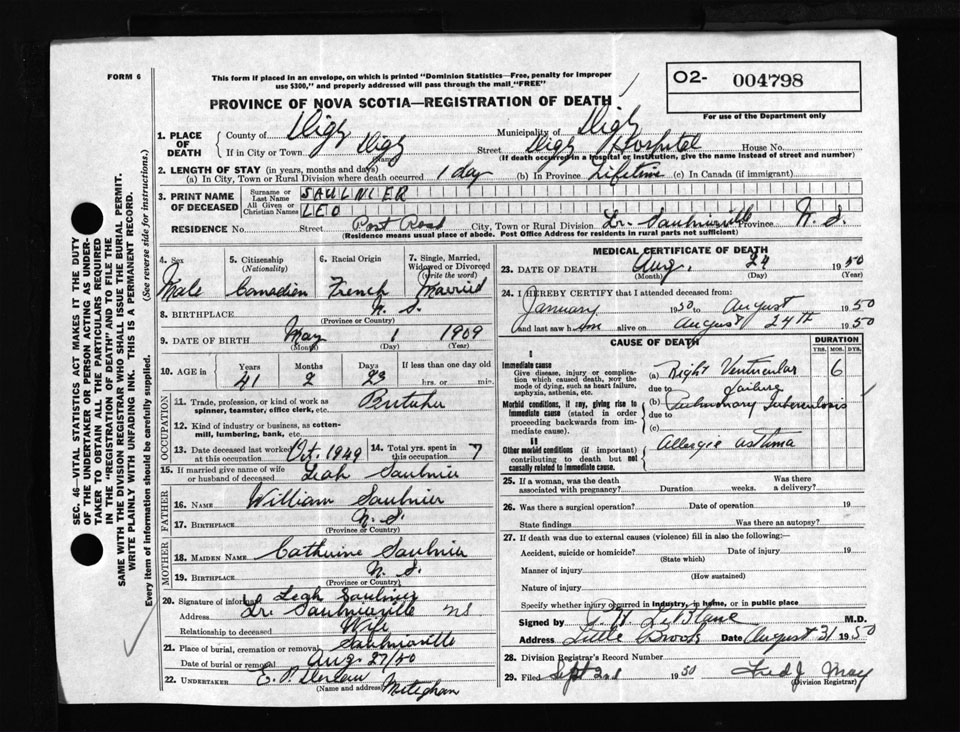 FORM 6
This form if placed in an envelope, on which is printed "Dominion Statistics—Free, penalty for improper
use $300," and properly addressed will pass through the mail "FREE"
O2- 004798
For use of the Department only
PROVINCE OF NOVA SCOTIA—REGISTRATION OF DEATH
1. PLACE OF DEATH
County of Digby Municipality of Digby
If in City or Town Digby Street Digby Hospital House No.
(Name) (If death occurred in a hospital or institution, give the name instead of street and number)
2. LENGTH OF STAY (in years, months and days)
(a) In City, Town or Rural Division where death occurred 1 day (b) In Province Lifetime (c) In Canada (if immigrant)
3. PRINT NAME OF DECEASED
Surname or Last Name SAULNIER
All Given or Christian Names LEO
RESIDENCE No. Street Post Road City, Town or Rural Division Lr. Saulnierville Province N. S.
(Residence means usual place of abode. Post Office Address for residents in rural parts not sufficient)
4. Sex Male
5. Citizenship (Nationality) Canadian
6. Racial Origin French
7. Single, Married, Widowed or Divorced (Write the word) Married
8. BIRTHPLACE N. S.
(Province or Country)
9. DATE OF BIRTH May 1 1909
(Month) (Day) (Year)
10. AGE in Years Months Days If less than one day old
41 2 23 hrs. or min.
OCCUPATION
11. Trade, profession, or kind of work as spinner, teamster, office clerk, etc. Butcher
12. Kind of industry or business, as cotton-mill, lumbering, bank, etc.
13. Date deceased last worked at this occupation Oct. 1949 14. Total yrs. spent in this occupation 7
15. If married give name of wife or husband of deceased Leah Saulnier
FATHER
16. NAME William Saulnier
17. BIRTHPLACE N. S.
(Province or Country)
MOTHER
18. MAIDEN NAME Catherine Saulnier
19. BIRTHPLACE N. S.
(Province or Country)
20. Signature of informant Leah Saulnier
Address Lr. Saulnierville NS
Relationship to deceased Wife
21. Place of burial, cremation or removal Saulnierville
Date of burial or removal Aug 27/50
22. UNDERTAKER E. P. Meteghan
(Name and address)
MEDICAL CERTIFICATE OF DEATH
23. DATE OF DEATH Aug. 24 1950
(Month) (Day) (Year)
24. I HEREBY CERTIFY that I attended deceased from:
January 1950 to August 1950
and last saw him alive on August 24th 1950
CAUSE OF DEATH DURATION
YRS. MOS. DYS.
I
Immediate cause
Give disease, injury or complication which caused death, NOT the mode of dying, such as heart failure, asphyxia, asthenia, etc.
(a) Right Ventricular Failure 6
due to
Morbid conditions, if any, giving rise to immediate cause (stated in order proceeding backwards from immediate cause).
(b) Pulmonary Tuberculosis
due to
(c)
II
Other morbid conditions (if important) contributing to death but not causally related to immediate cause.
Allergic asthma
25. If a woman, was the death associated with pregnancy? Duration weeks. Was there a delivery?
26. Was there a surgical operation? Date of operation 19
State findings Was there an autopsy?
27. If death was due to external causes (violence) fill in also the following:
Accident, suicide or homicide? Date of injury 19
(State which)
Manner of injury
(How sustained)
Nature of injury
Specify whether injury occurred in industry, in home, or in public place
Signed by P. H. LeBlanc M.D.
Address Little Brook Date August 31 1950
28. Division Registrar's Record Number
29. Filed Sept 2nd 1950 Fred J May
(Division Registrar)
SEC. 46—VITAL STATISTICS ACT MAKES IT THE DUTY
OF THE UNDERTAKER OR PERSON ACTING AS UNDER-
TAKER TO OBTAIN ALL THE PARTICULARS REQUIRED
IN THE "REGISTRATION OF DEATH" AND TO FILE THE
SAME WITH THE DIVISION REGISTRAR WHO SHALL ISSUE THE BURIAL PERMIT.
WRITE PLAINLY WITH UNFADING INK. THIS IS A PERMANENT RECORD.
Every item of information should be carefully supplied. (See reverse side for instructions.)